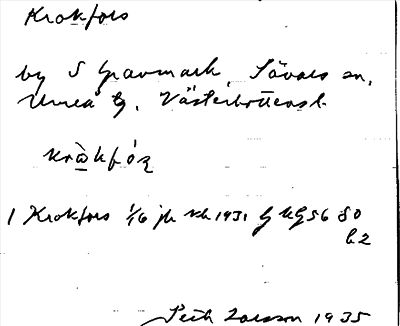 Krokfors
by S Gravmark, Sävars sn,
Umeå tg, Västerbottens l.
krà̱kfo̗ʂ
1 Krokfors 1/16 jb kb 1931 GKG 56 80
b2
Seth Larsson 1935